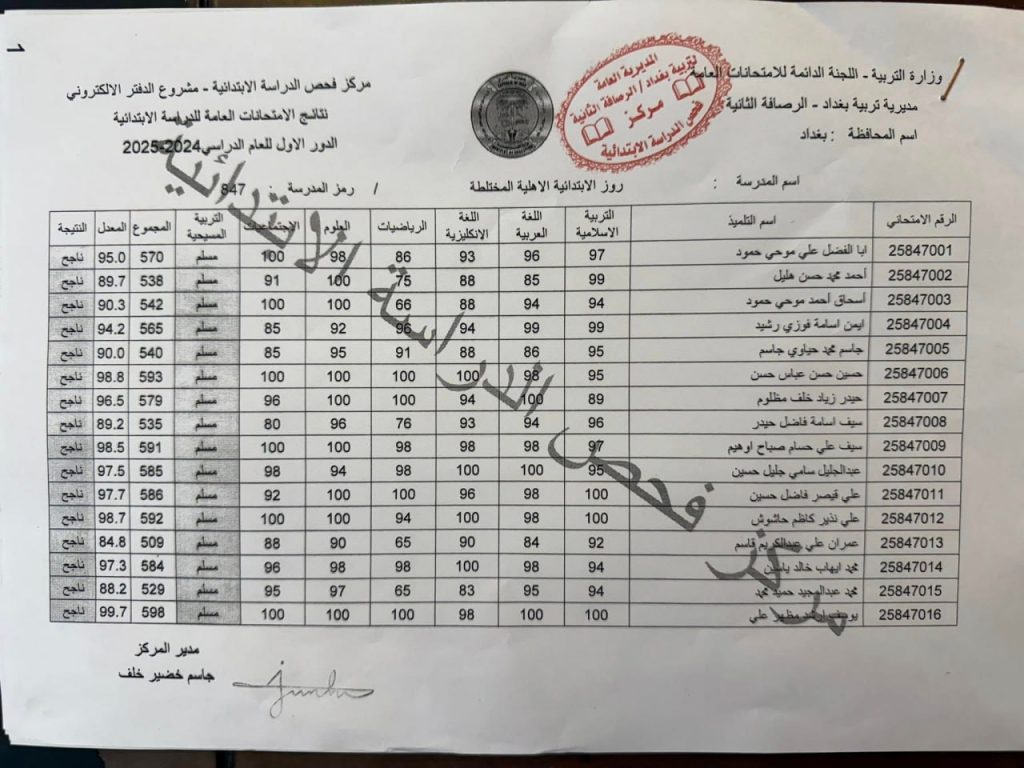 1
وزارة التربية - اللجنة الدائمة للامتحانات العامة
مديرية تربية بغداد - الرصافة الثانية
اسم المحافظة : بغداد
المديرية العامة
لتربية بغداد / الرصافة الثانية
مركز
فحص الدراسة الابتدائية
مركز فحص الدراسة الابتدائية - مشروع الدفتر الالكتروني
نتائج الامتحانات العامة للدراسة الابتدائية
الدور الاول للعام الدراسي 2024-2025
اسم المدرسة : روز الابتدائية الاهلية المختلطة / رمز المدرسة : 847
الرقم الامتحاني اسم التلميذ التربية الاسلامية اللغة العربية اللغة الانكليزية الرياضيات العلوم الاجتماعيات التربية المسيحية المجموع المعدل النتيجة
25847001 ابا الفضل علي موحي حمود 97 96 93 86 98 100 مسلم 570 95.0 ناجح
25847002 أحمد محمد حسن هليل 99 85 88 75 100 91 مسلم 538 89.7 ناجح
25847003 أسحاق أحمد موحي حمود 94 94 88 66 100 100 مسلم 542 90.3 ناجح
25847004 ايمن اسامة فوزي رشيد 99 99 94 96 92 85 مسلم 565 94.2 ناجح
25847005 جاسم محمد حياوي جاسم 95 86 88 91 95 85 مسلم 540 90.0 ناجح
25847006 حسين حسن عباس حسن 95 98 100 100 100 100 مسلم 593 98.8 ناجح
25847007 حيدر زياد خلف مظلوم 89 100 94 100 100 96 مسلم 579 96.5 ناجح
25847008 سيف اسامة فاضل حيدر 96 94 93 76 96 80 مسلم 535 89.2 ناجح
25847009 سيف علي حسام صباح اوهيم 97 98 98 98 100 100 مسلم 591 98.5 ناجح
25847010 عبدالجليل سامي جليل حسين 95 100 100 98 94 98 مسلم 585 97.5 ناجح
25847011 علي قيصر فاضل حسين 100 98 96 100 100 92 مسلم 586 97.7 ناجح
25847012 علي نذير كاظم حاشوش 100 98 100 94 100 100 مسلم 592 98.7 ناجح
25847013 عمران علي عبدالكريم قاسم 92 84 90 65 90 88 مسلم 509 84.8 ناجح
25847014 محمد ايهاب خالد ياسين 94 98 100 98 98 96 مسلم 584 97.3 ناجح
25847015 محمد عبدالمجيد حميد محمد 94 95 83 65 97 95 مسلم 529 88.2 ناجح
25847016 يوسف مظهر علي 100 100 98 100 100 100 مسلم 598 99.7 ناجح
مركز فحص الدراسة الابتدائية
مدير المركز
جاسم خضير خلف